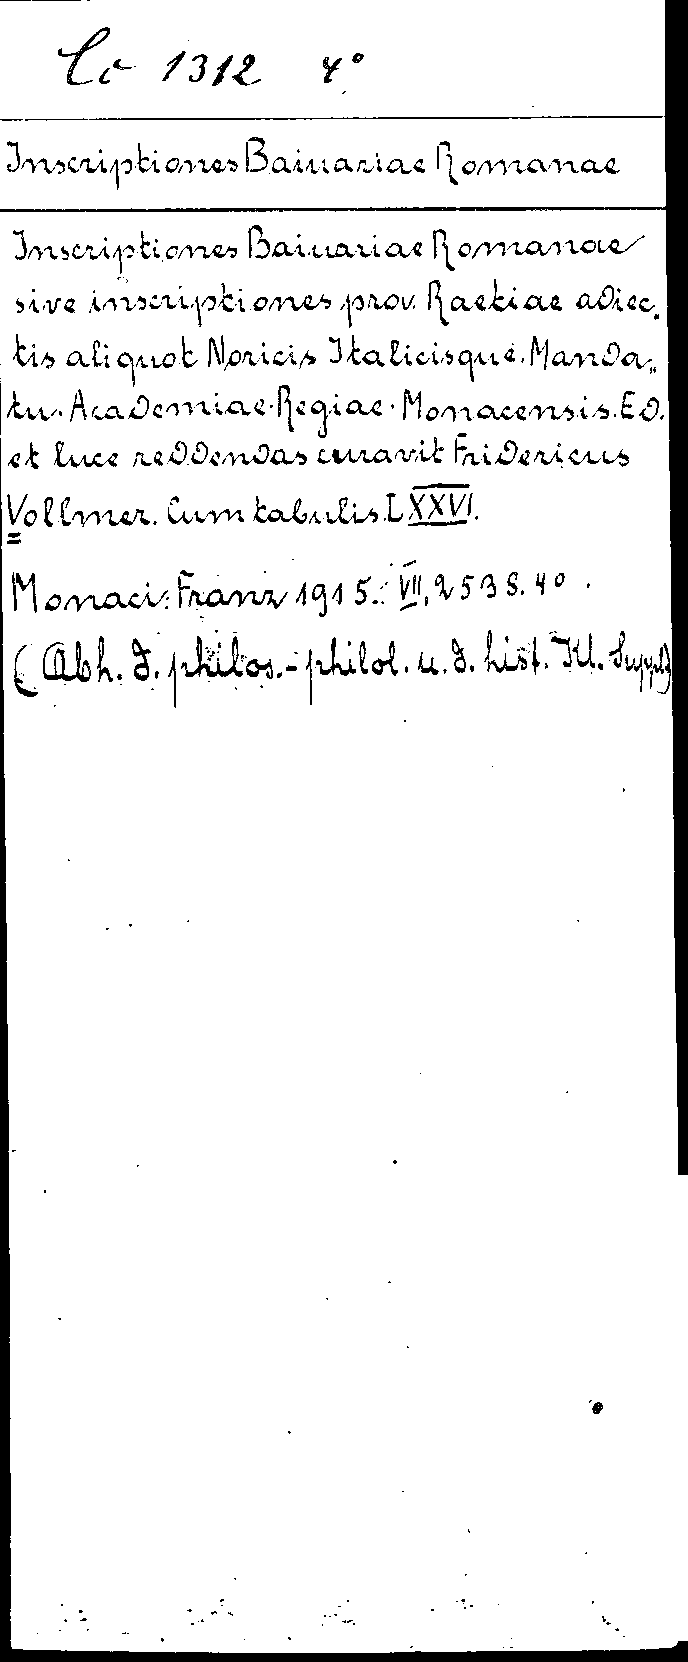 Co 1312 4°
Inscriptiones Baiuariae Romanae
Inscriptiones Baiuariae Romanae
sive inscriptiones prov. Raetiae adiec„
tis aliquot Noricis Italicisque. Manda„
tu. Academiae Regiae Monacensis. Ed.
et luce reddendas curavit Fridericus
Vollmer. Cum tabulis LXXVI.
Monaci: Franz 1915. VII, 253 S. 4°.
(Abh. d. philos.-philol. u. d. hist. Kl. Suppl)